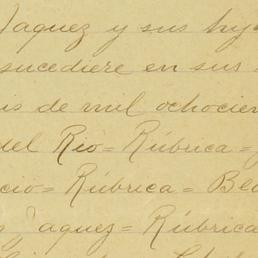 Jaquez y sus hij
sucediere en sus
is de mil ochocien
del Rio = Rúbrica =
cio = Rúbrica = Bla
Jaquez = Rúbrica